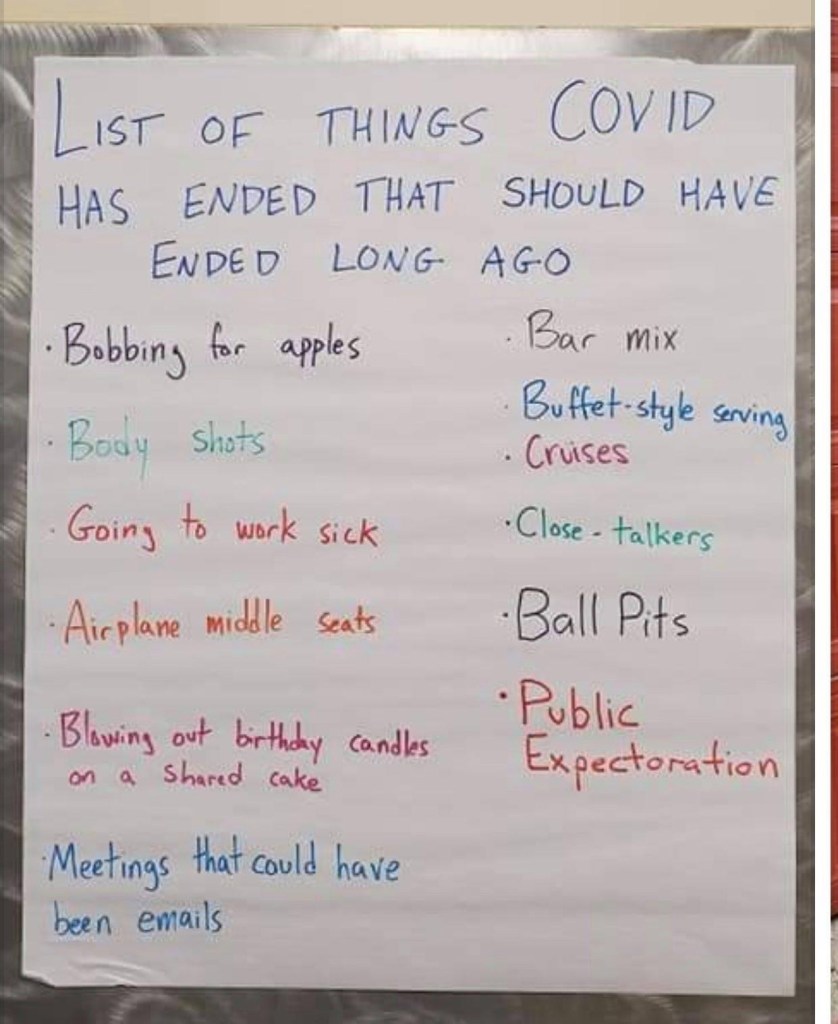 LIST OF THINGS COVID
HAS ENDED THAT SHOULD HAVE
ENDED LONG AGO
· Bobbing for apples
· Body shots
· Going to work sick
· Airplane middle seats
· Blowing out birthday candles
on a shared cake
· Meetings that could have
been emails
· Bar mix
· Buffet-style serving
· Cruises
· Close-talkers
· Ball Pits
· Public
Expectoration